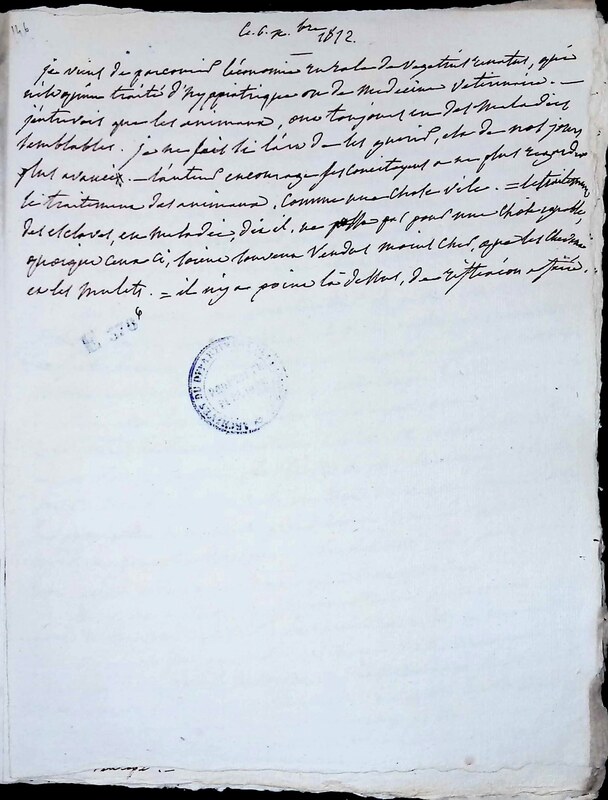 146
Ce. 6. x.bre 1812.
je viens de parcourir l'économie rurale de Vegetius renatus, qui
n'est qu'un traité d'hyppiatrique ou de medecine Veterinaire. —
j'entrevois que les animaux, ont toujours eu des Maladies
semblables. je ne sais si l'art de les guerir, est de nos jours
plus avancé. — l'auteur encourage ses concitoyens a ne plus regarder
le traitement des animaux, comme une chose vile. = le traitement
des esclaves, en maladie, dit il, ne passe pas pour une chose
quoique ceux ci, soient souvent Vendus moins cher, que les chevaux
et les mulets. = il n'y a point là dessus, de reflexion a faire.
ARCHIVES DU